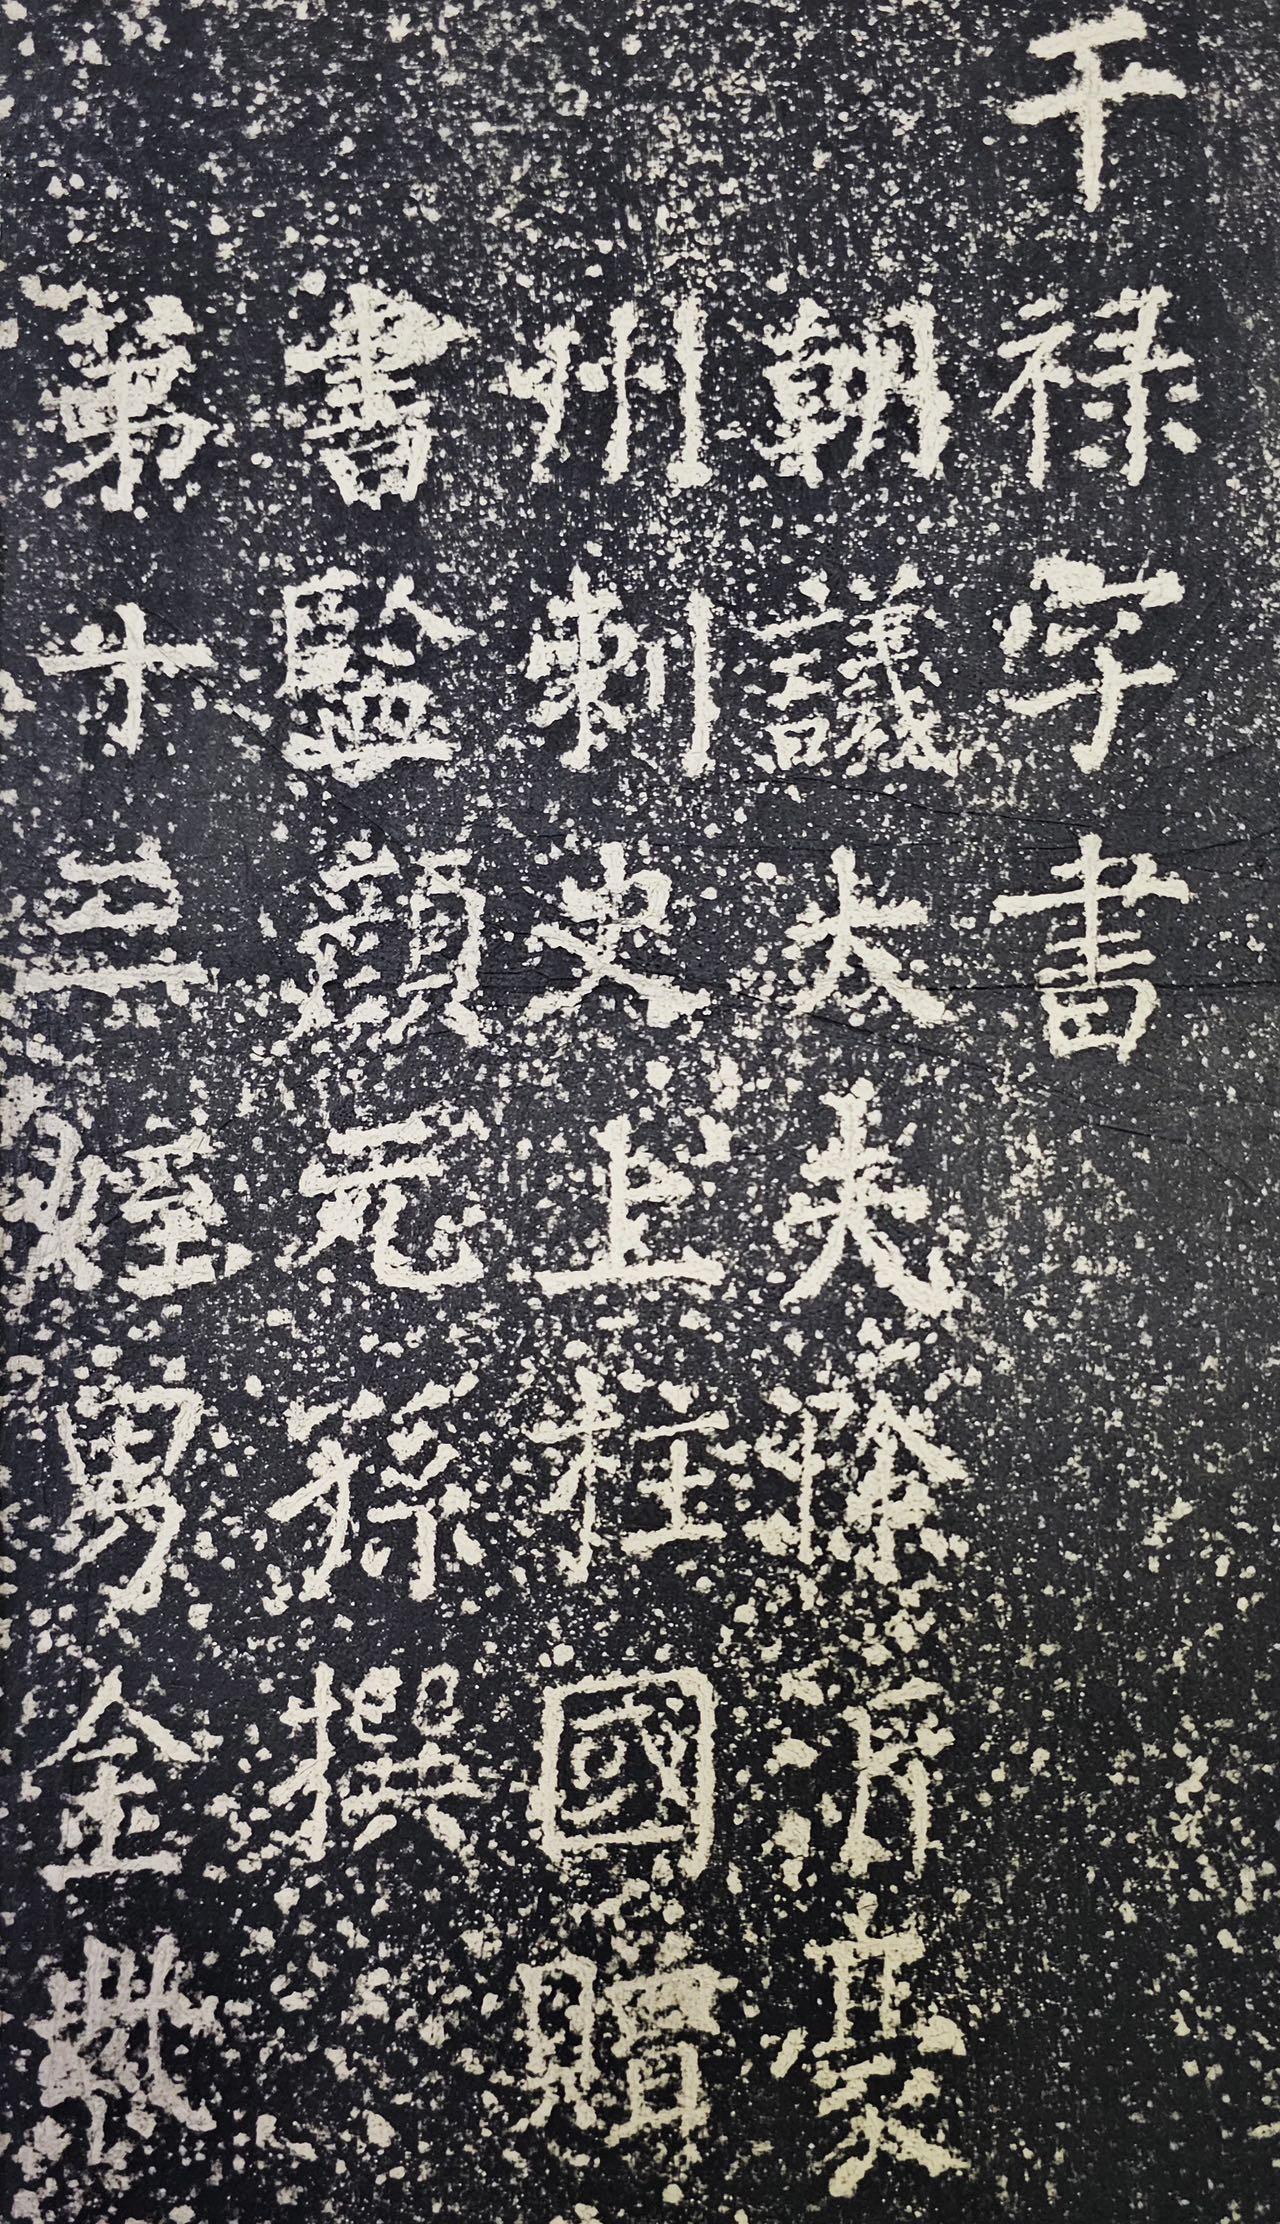 干禄字書
朝議大夫滁沂豪
州刺史上柱國贈
書監顏元孫撰
第十三姪男金